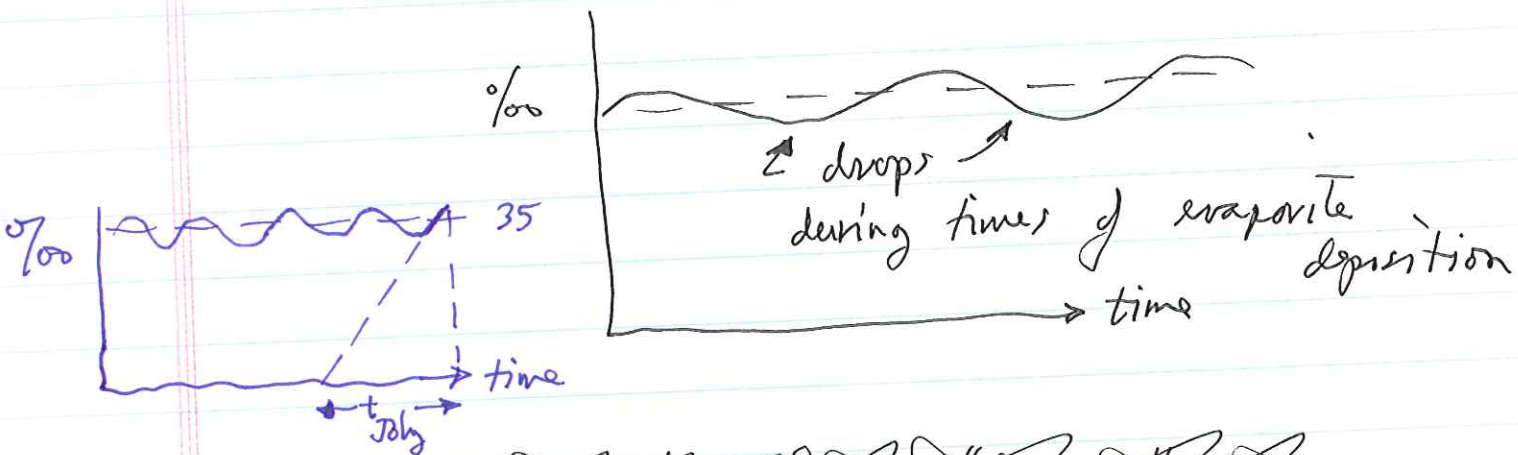 ‰
drops
during times of evaporite
deposition
time
‰
35
time
t Joly